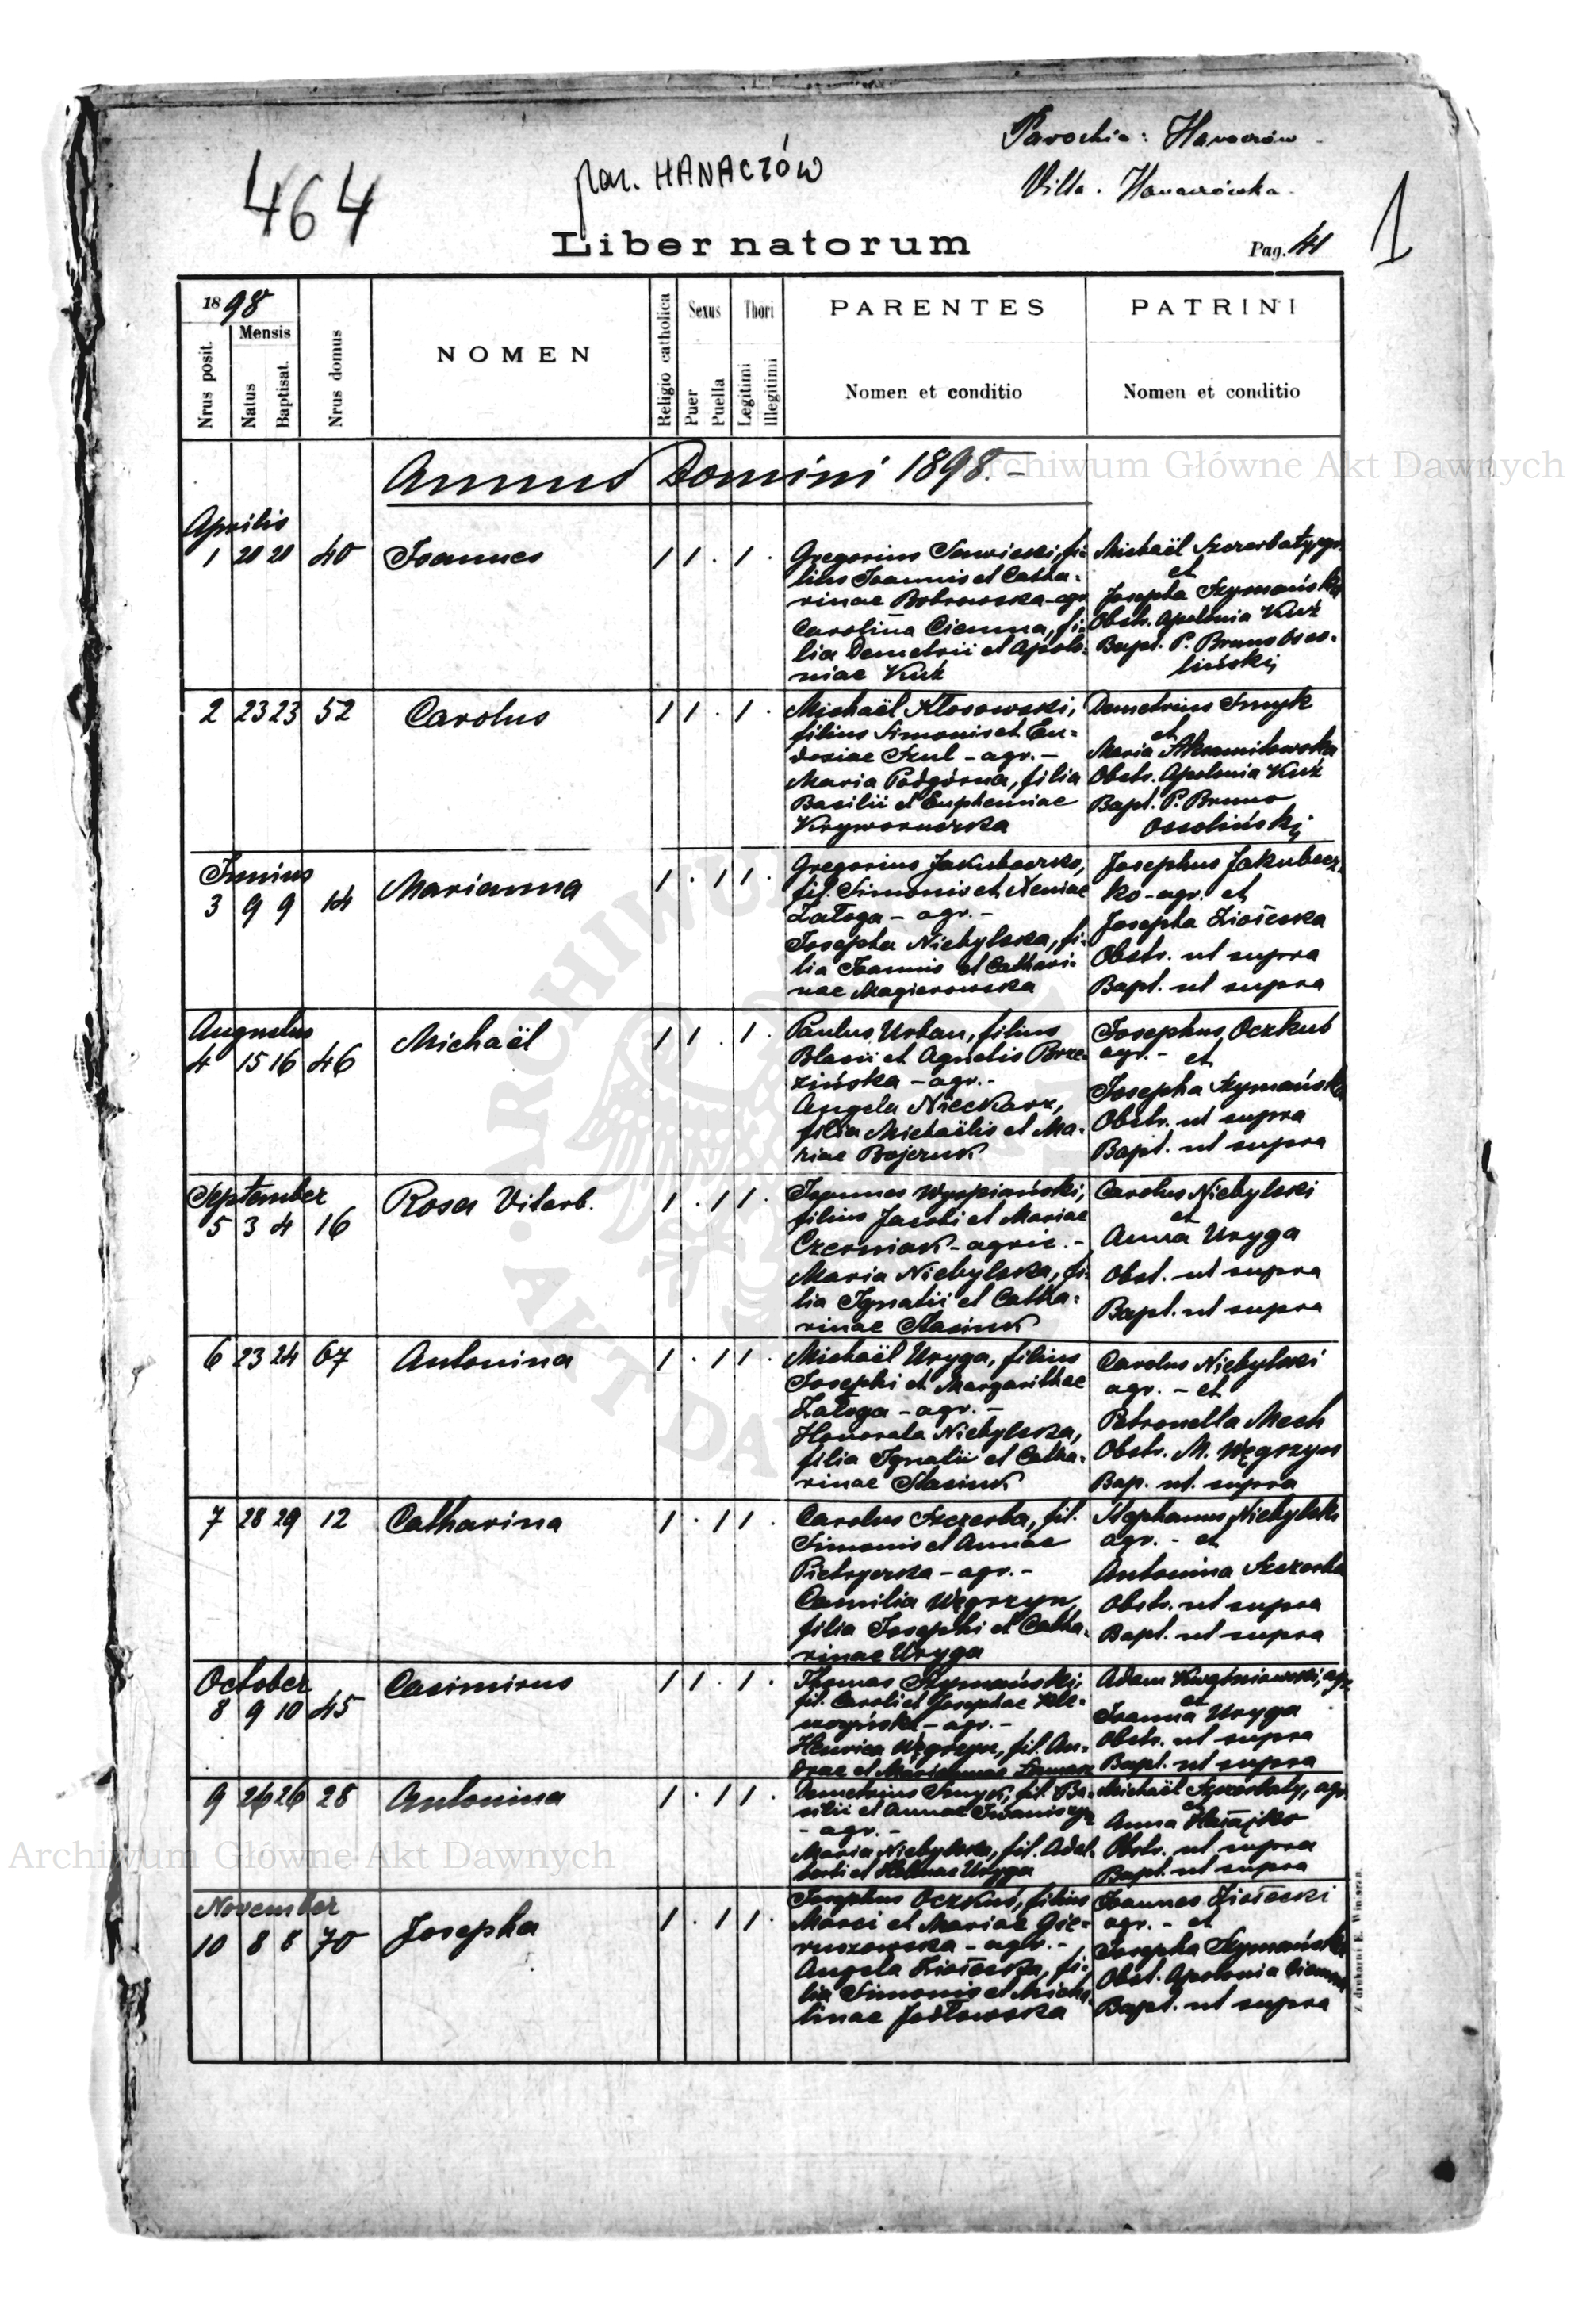 Parochia: Hanaczów
par. HANACZÓW
464
Villa. Hanaczówka
1
Liber natorum
Pag. 41
1898
Mensis
Nrus posit.
Natus
Baptisat.
Nrus domus
NOMEN
Religio catholica
Sexus
Puer
Puella
Thori
Legitimi
Illegitimi
PARENTES
Nomen et conditio
PATRINI
Nomen et conditio
Annus Domini 1898.-
Archiwum Główne Akt Dawnych
Aprilis
1 20 20 40 Joannes 1 1 . 1 .
Gregorius Sawicki, fi-
lius Joannis et Catha-
rinae Bobrowska-agr
Carolina Ciemna, fi-
lia Demetrii et Apolo-
niae Kuź
Michaël Szczerbaty, agr.
et
Josepha Szymańska
Obstr. Apolonia Kuź
Bapt. P. Bruno Osso-
liński
2 23 23 52 Carolus 1 1 . 1 .
Michaël Kłosowski,
filius Simonis et Eu-
doxiae Szul - agr. -
Maria Podgórna, filia
Basilii et Eupheniae
Kryworuczka
Demetrius Smyk
et
Maria
Obstr. Apolonia Kuź
Bapt. P. Bruno
Ossoliński
Junius
3 9 9 14 Marianna 1 . 1 1 .
Gregorius Jakubeczko,
fil. Simonis et Xeniae
Załoga - agr. -
Josepha Niebylska, fi-
lia Joannis et Cathari-
nae Magierowska
Josephus Jakubecz-
ko - agr. et
Josepha Ziółecka
Obstr. ut supra
Bapt. ut supra
Augustus
4 15 16 46 Michaël 1 1 . 1 .
Paulus Urban, filius
Blasii et Agnetis Brze-
zińska - agr. -
Angela Nieckarz,
filia Michaëlis et Ma-
riae Bojczuk
Josephus Oczkuś
agr. - et
Josepha Szymańska
Obstr. ut supra
Bapt. ut supra
September
5 3 4 16 Rosa Viterb. 1 . 1 1 .
Joannes Wyspiański,
filius Jacobi et Mariae
Czerniak - agric. -
Maria Niebylska, fi-
lia Ignatii et Catha-
rinae Stasiuk
Carolus Niebylski
et
Anna Uryga
Obst. ut supra
Bapt. ut supra
6 23 24 67 Antonina 1 . 1 1 .
Michaël Uryga, filius
Josephi et Margarithae
Załoga - agr. -
Honorata Niebylska,
filia Ignatii et Catha-
rinae Stasiuk
Carolus Niebylski
agr. - et
Petronella Mech
Obstr. M. Węgrzyn
Bap. ut. supra
7 28 29 12 Catharina 1 . 1 1 .
Carolus Szczerba, fil.
Simonis et Annae
Pietryczka - agr. -
Camilia Węgrzyn,
filia Josephi et Catha-
rinae Uryga
Stephanus Niebylski
agr. - et
Antonina Szczerba
Obstr. ut supra
Bapt. ut supra
October
8 9 10 45 Casimirus 1 1 . 1 .
Thomas Szymański,
fil. Caroli et Josephae
- agr. -
Henrica Węgrzyn, fil. An-
drae et Mariannae
Adam Kwaśniowski, agr.
et
Joanna Uryga
Obstr. ut supra
Bapt. ut supra
9 26 26 28 Antonina 1 . 1 1 .
Demetrius Smyk, fil. Ba-
silii et Annae Iwaniszyn
- agr. -
Maria Niebylska, fil. Adal-
berti et Hellenae Uryga
Michaël Szczerbaty, agr.
et
Anna
Obstr. ut supra
Bapt. ut supra
Archiwum Główne Akt Dawnych
November
10 8 8 70 Josepha 1 . 1 1 .
Josephus Oczkuś, filius
Marci et Mariae Gie-
ruszowska - agr. -
Angela Ziółecka, fi-
lia Simonis et Micha-
linae Jodłowska
Joannes Ziółecki
agr. - et
Josepha Szymańska
Obst. Apolonia Ciemna
Bapt. ut supra
Z drukarni E. Winiarza.
ARCHIWUM AKT DAWNYCH